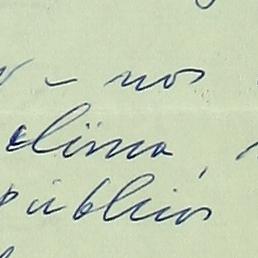 - nos
clima,
públicos